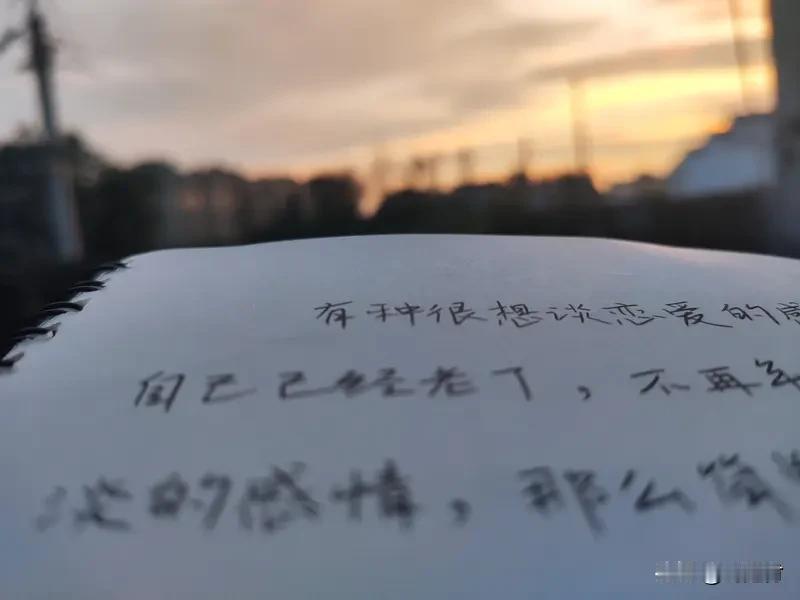 有种很想谈恋爱的感
自己已经老了，不再年
淡的感情，那么简